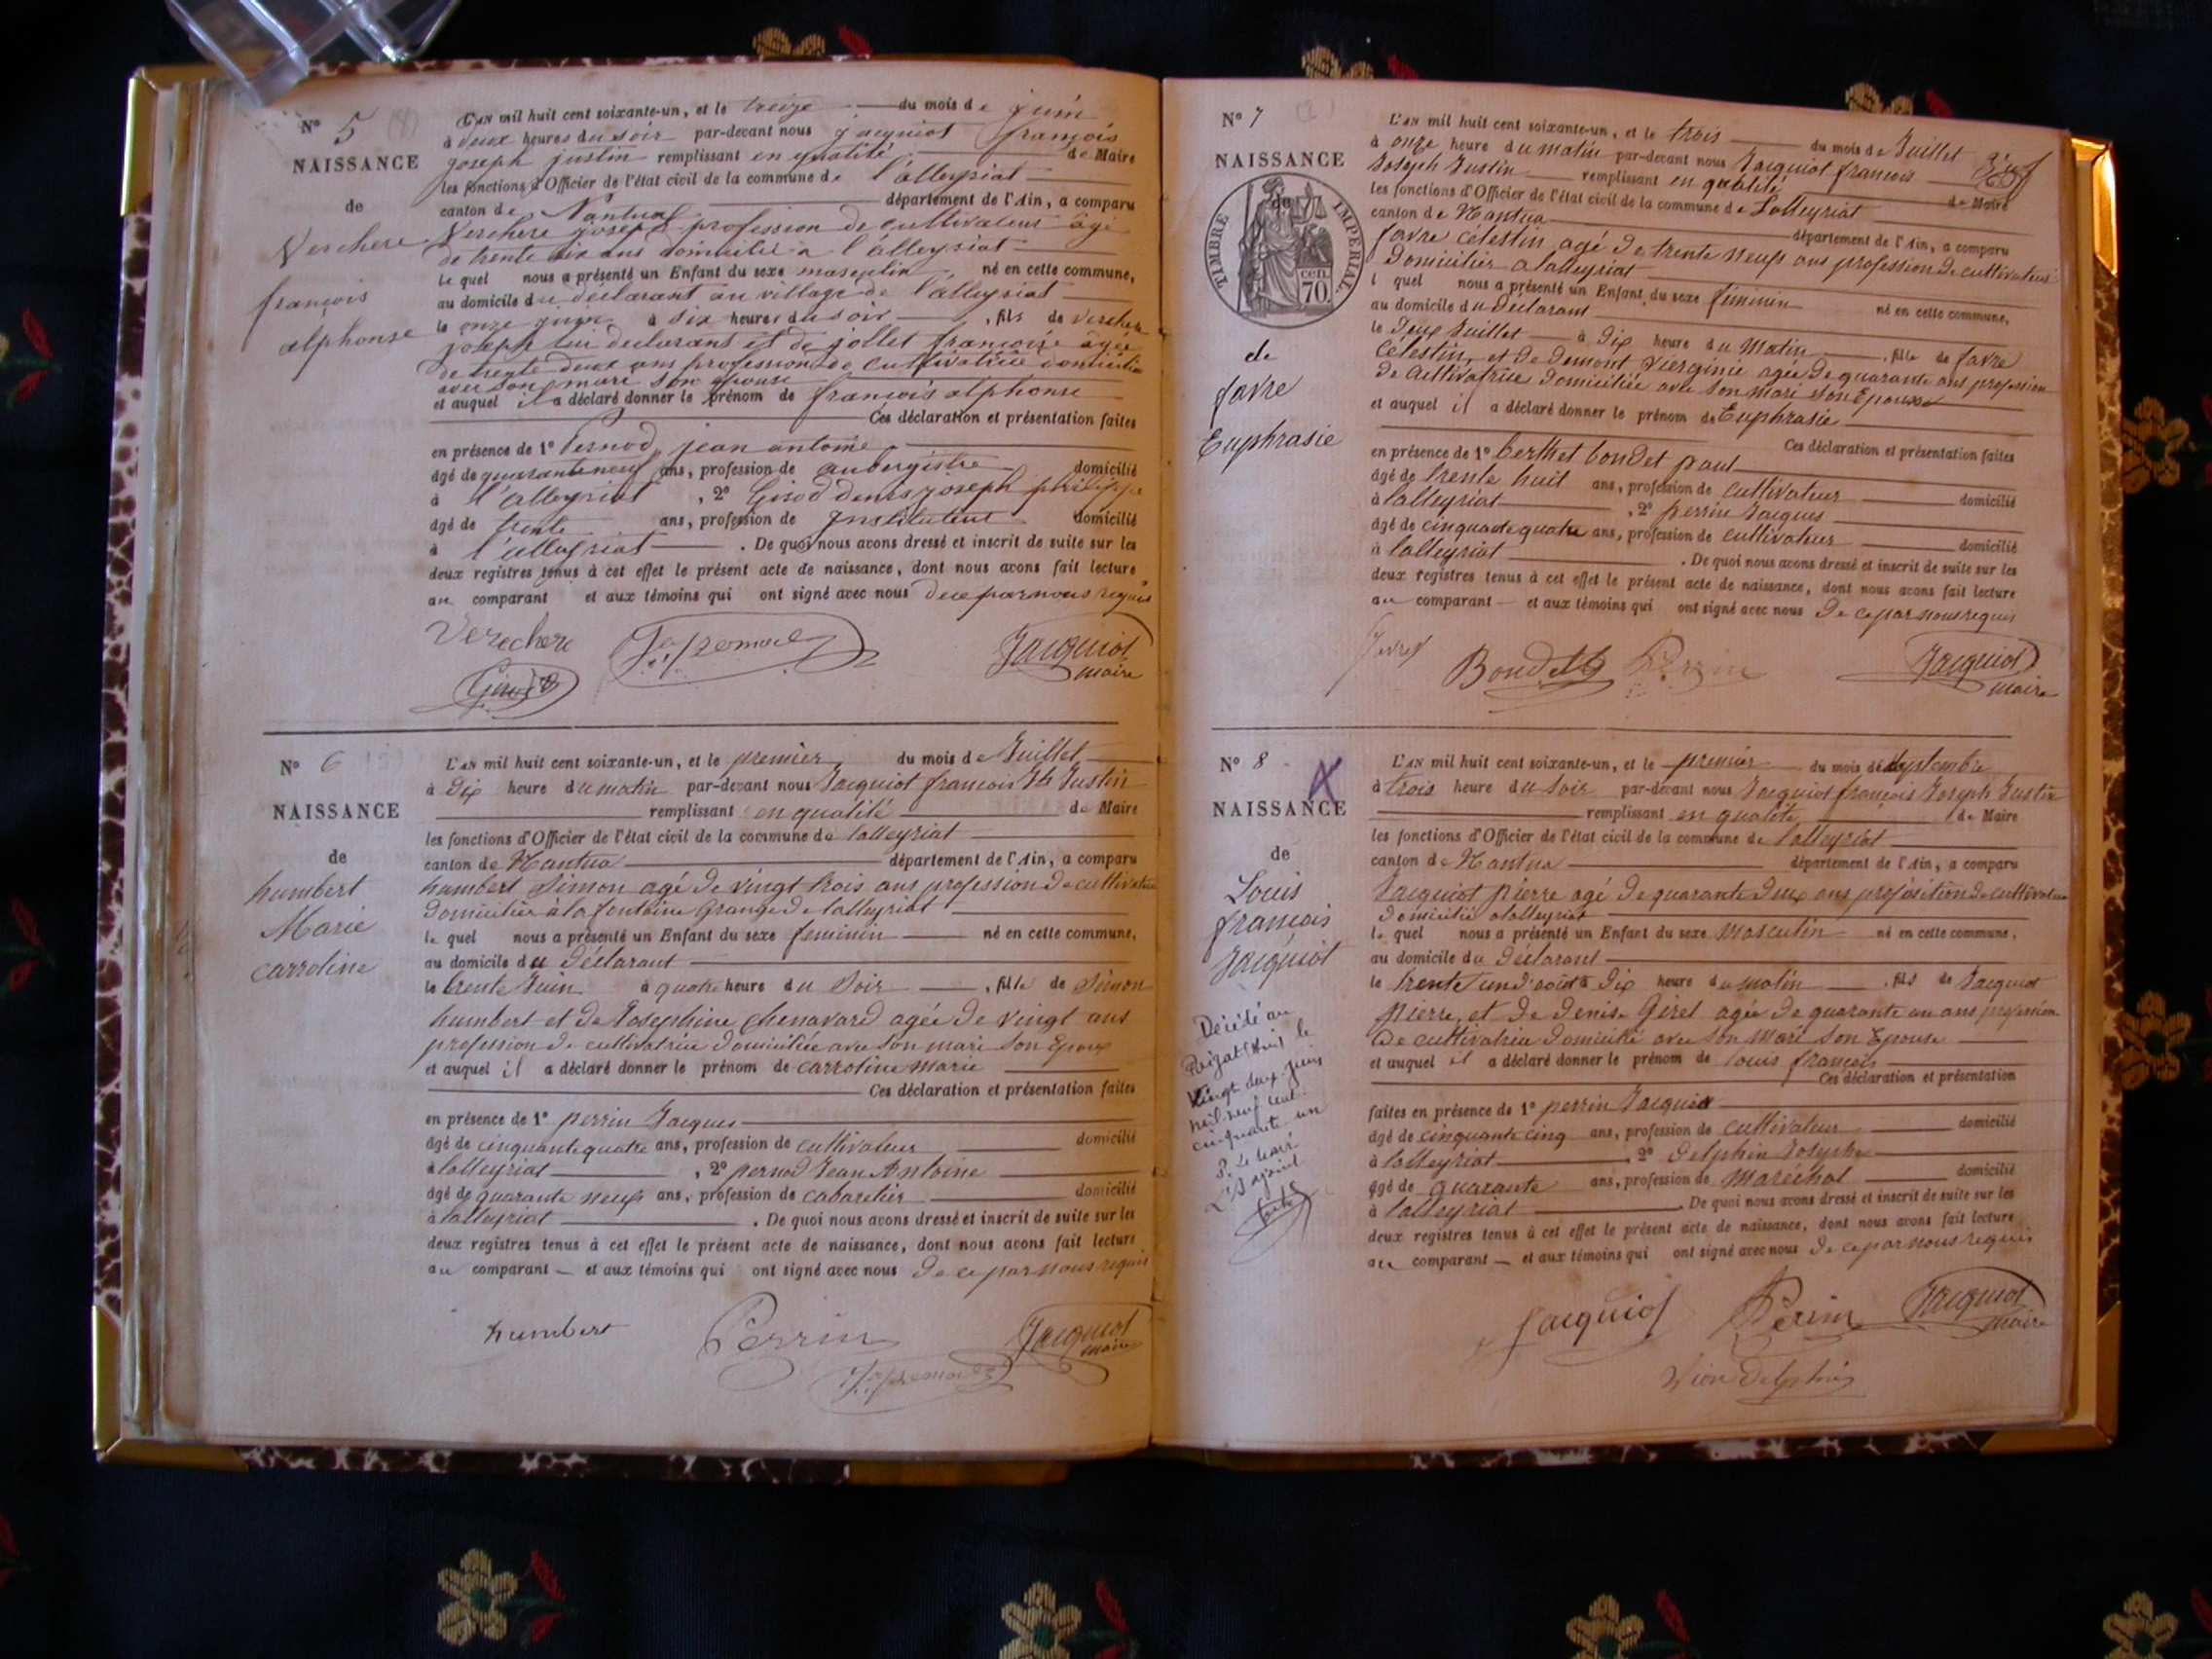 N° 5
NAISSANCE
de
Verchere
françois
alphonse
L'AN mil huit cent soixante-un, et le treize du mois de juin
à deux heures du soir par-devant nous jacquiot françois
joseph justin remplissant en qualité de Maire
les fonctions d'Officier de l'état civil de la commune de l'alleyriat
canton de Nantua département de l'Ain, a comparu
Verchere joseph profession de cultivateur âgé
de trente six ans domicilié a l'alleyriat
le quel nous a présenté un Enfant du sexe masculin né en cette commune,
au domicile du déclarant au village de l'alleyriat
le onze juin à six heures du soir, fils de Verchere
joseph lui déclarant et de jollet françoise âgée
de trente deux ans profession de cultivatrice domiciliée
avec son mari son epouse
et auquel il a déclaré donner le prénom de françois alphonse
Ces déclaration et présentation faites
en présence de 1° Pernod jean antoine
âgé de quarante neuf ans, profession de aubergiste domicilié
à l'alleyriat, 2° Girod denis joseph philippe
âgé de trente ans, profession de instituteur domicilié
à l'alleyriat. De quoi nous avons dressé et inscrit de suite sur les
deux registres tenus à cet effet le présent acte de naissance, dont nous avons fait lecture
au comparant et aux témoins qui ont signé avec nous de ce par nous requis
Verechere
Jacquiot
maire
Girod
N° 6
NAISSANCE
de
humbert
Marie
carroline
L'AN mil huit cent soixante-un, et le premier du mois de Juillet
à Dix heure du matin par-devant nous Jacquiot francois Jh Justin
remplissant en qualité de Maire
les fonctions d'Officier de l'état civil de la commune de lalleyriat
canton de Nantua département de l'Ain, a comparu
humbert Simon agé de vingt trois ans profession de cultivateur
Domicilier à la fontaine Grange de lalleyriat
le quel nous a présenté un Enfant du sexe feminin né en cette commune,
au domicile du Déclarant
le trente Juin à quatre heure du Soir, fille de Simon
humbert et de Josephine Chenavard agée de vingt ans
profession de cultivatrice Domiciliée avec Son mari Son Epoux
et auquel il a déclaré donner le prénom de carroline marie
Ces déclaration et présentation faites
en présence de 1° perrin Jacques
âgé de cinquante quatre ans, profession de cultivateur domicilié
à lalleyriat, 2° pernod Jean Antoine
âgé de quarante neuf ans, profession de cabaretier domicilié
à lalleyriat. De quoi nous avons dressé et inscrit de suite sur les
deux registres tenus à cet effet le présent acte de naissance, dont nous avons fait lecture
au comparant et aux témoins qui ont signé avec nous de ce par nous requis
humbert Perrin Jacquiot
maire
N° 7
NAISSANCE
TIMBRE IMPERIAL
cen.
70
de
favre
Euphrasie
L'AN mil huit cent soixante-un, et le trois du mois de Juillet
à onze heure du matin par-devant nous Jacquiot francois
Joseph Justin remplissant en qualité de Maire
les fonctions d'Officier de l'état civil de la commune de Lalleyriat
canton de Nantua département de l'Ain, a comparu
favre célestin agé de trente neuf ans profession de cultivateur
Domicilier a lalleyriat
l quel nous a présenté un Enfant du sexe féminin né en cette commune,
au domicile du Déclarant
le Deux Juillet à Dix heure du Matin, fille de favre
célestin, et de Demont vierginie agée de quarante ans profession
de cultivatrice Domiciliée avec Son Mari Son Epouse
et auquel il a déclaré donner le prénom de Euphrasie
Ces déclaration et présentation faites
en présence de 1° berthet bondet paul
âgé de trente huit ans, profession de cultivateur domicilié
à lalleyriat, 2° perrin Jacques
âgé de cinquante quatre ans, profession de cultivateur domicilié
à lalleyriat. De quoi nous avons dressé et inscrit de suite sur les
deux registres tenus à cet effet le présent acte de naissance, dont nous avons fait lecture
au comparant et aux témoins qui ont signé avec nous De ce par nous requis
Perrin Jacquiot
maire
N° 8
NAISSANCE
de
Louis
francois
Jacquiot
Décédé au
Poizat (Ain) le
vingt deux juin
mil neuf cent
cinquante un
P. Le Maire
L'Adjoint
L'AN mil huit cent soixante-un, et le premier du mois de Septembre
à trois heure du Soir par-devant nous Jacquiot francois Joseph Justin
remplissant en qualité de Maire
les fonctions d'Officier de l'état civil de la commune de lalleyriat
canton de Nantua département de l'Ain, a comparu
Jacquiot pierre agé de quarante Deux ans profession de cultivateur
Domicilié a lalleyriat
le quel nous a présenté un Enfant du sexe Masculin né en cette commune,
au domicile du Déclarant
le trente un d'août à Dix heure du matin, fils de Jacquiot
pierre, et de Denise Girel agée de quarante un ans profession
De cultivatrice Domicilié avec son Mari Son Epouse
et auquel il a déclaré donner le prénom de louis francois
Ces déclaration et présentation
faites en présence de 1° perrin Jacques
âgé de cinquante cinq ans, profession de cultivateur domicilié
à lalleyriat, 2° Delphin Joseph
âgé de quarante ans, profession de Maréchal domicilié
à lalleyriat. De quoi nous avons dressé et inscrit de suite sur les
deux registres tenus à cet effet le présent acte de naissance, dont nous avons fait lecture
au comparant et aux témoins qui ont signé avec nous De ce par nous requis
Jacquiot Perrin Jacquiot
maire